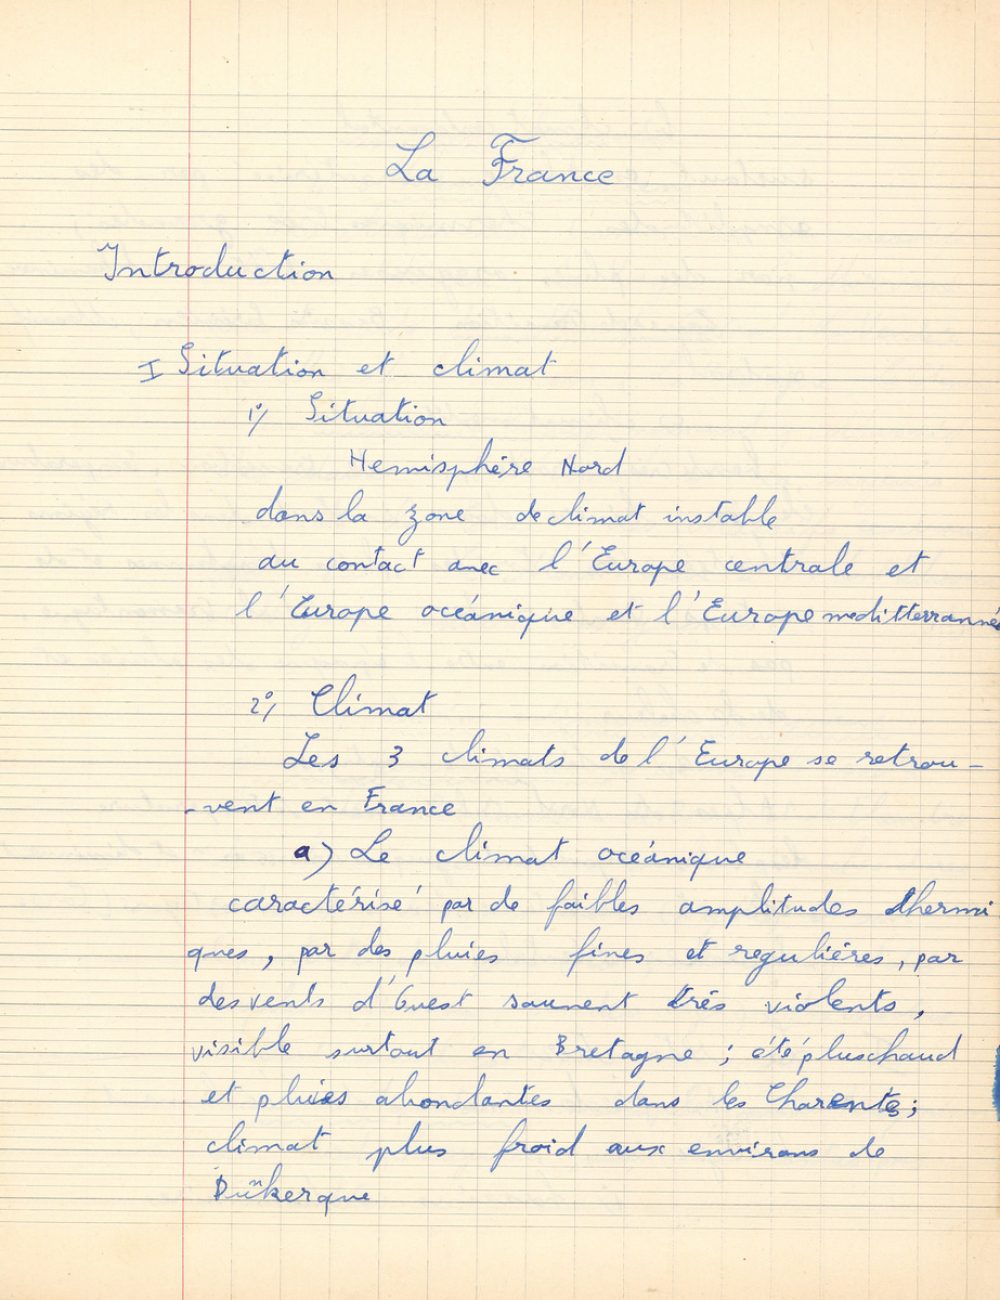 La France
Introduction
I Situation et climat
1°/ Situation
Hemisphère Nord
dans la zone de climat instable
au contact avec l'Europe centrale et
l'Europe océanique et l'Europe meditterranné
2°/ Climat
Les 3 climats de l'Europe se retrou-
-vent en France
a) Le climat océanique
caractérisé par de faibles amplitudes thermi
ques, par des pluies fines et regulières, par
des vents d'Ouest souvent très violents,
visible surtout en Bretagne ; été plus chaud
et pluies abondantes dans les Charentes ;
climat plus froid aux environs de
Dunkerque